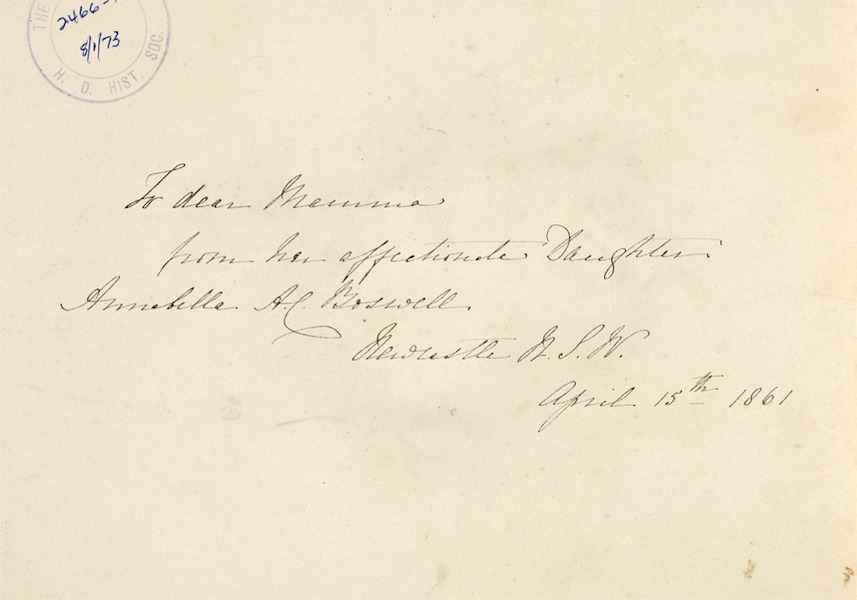 THE
2466
8/1/73
H. D. HIST. SOC.
To dear Mamma
from her affectionate Daughter
Annabella A.C. Boswell
Newcastle N. S. W.
April 15th 1861